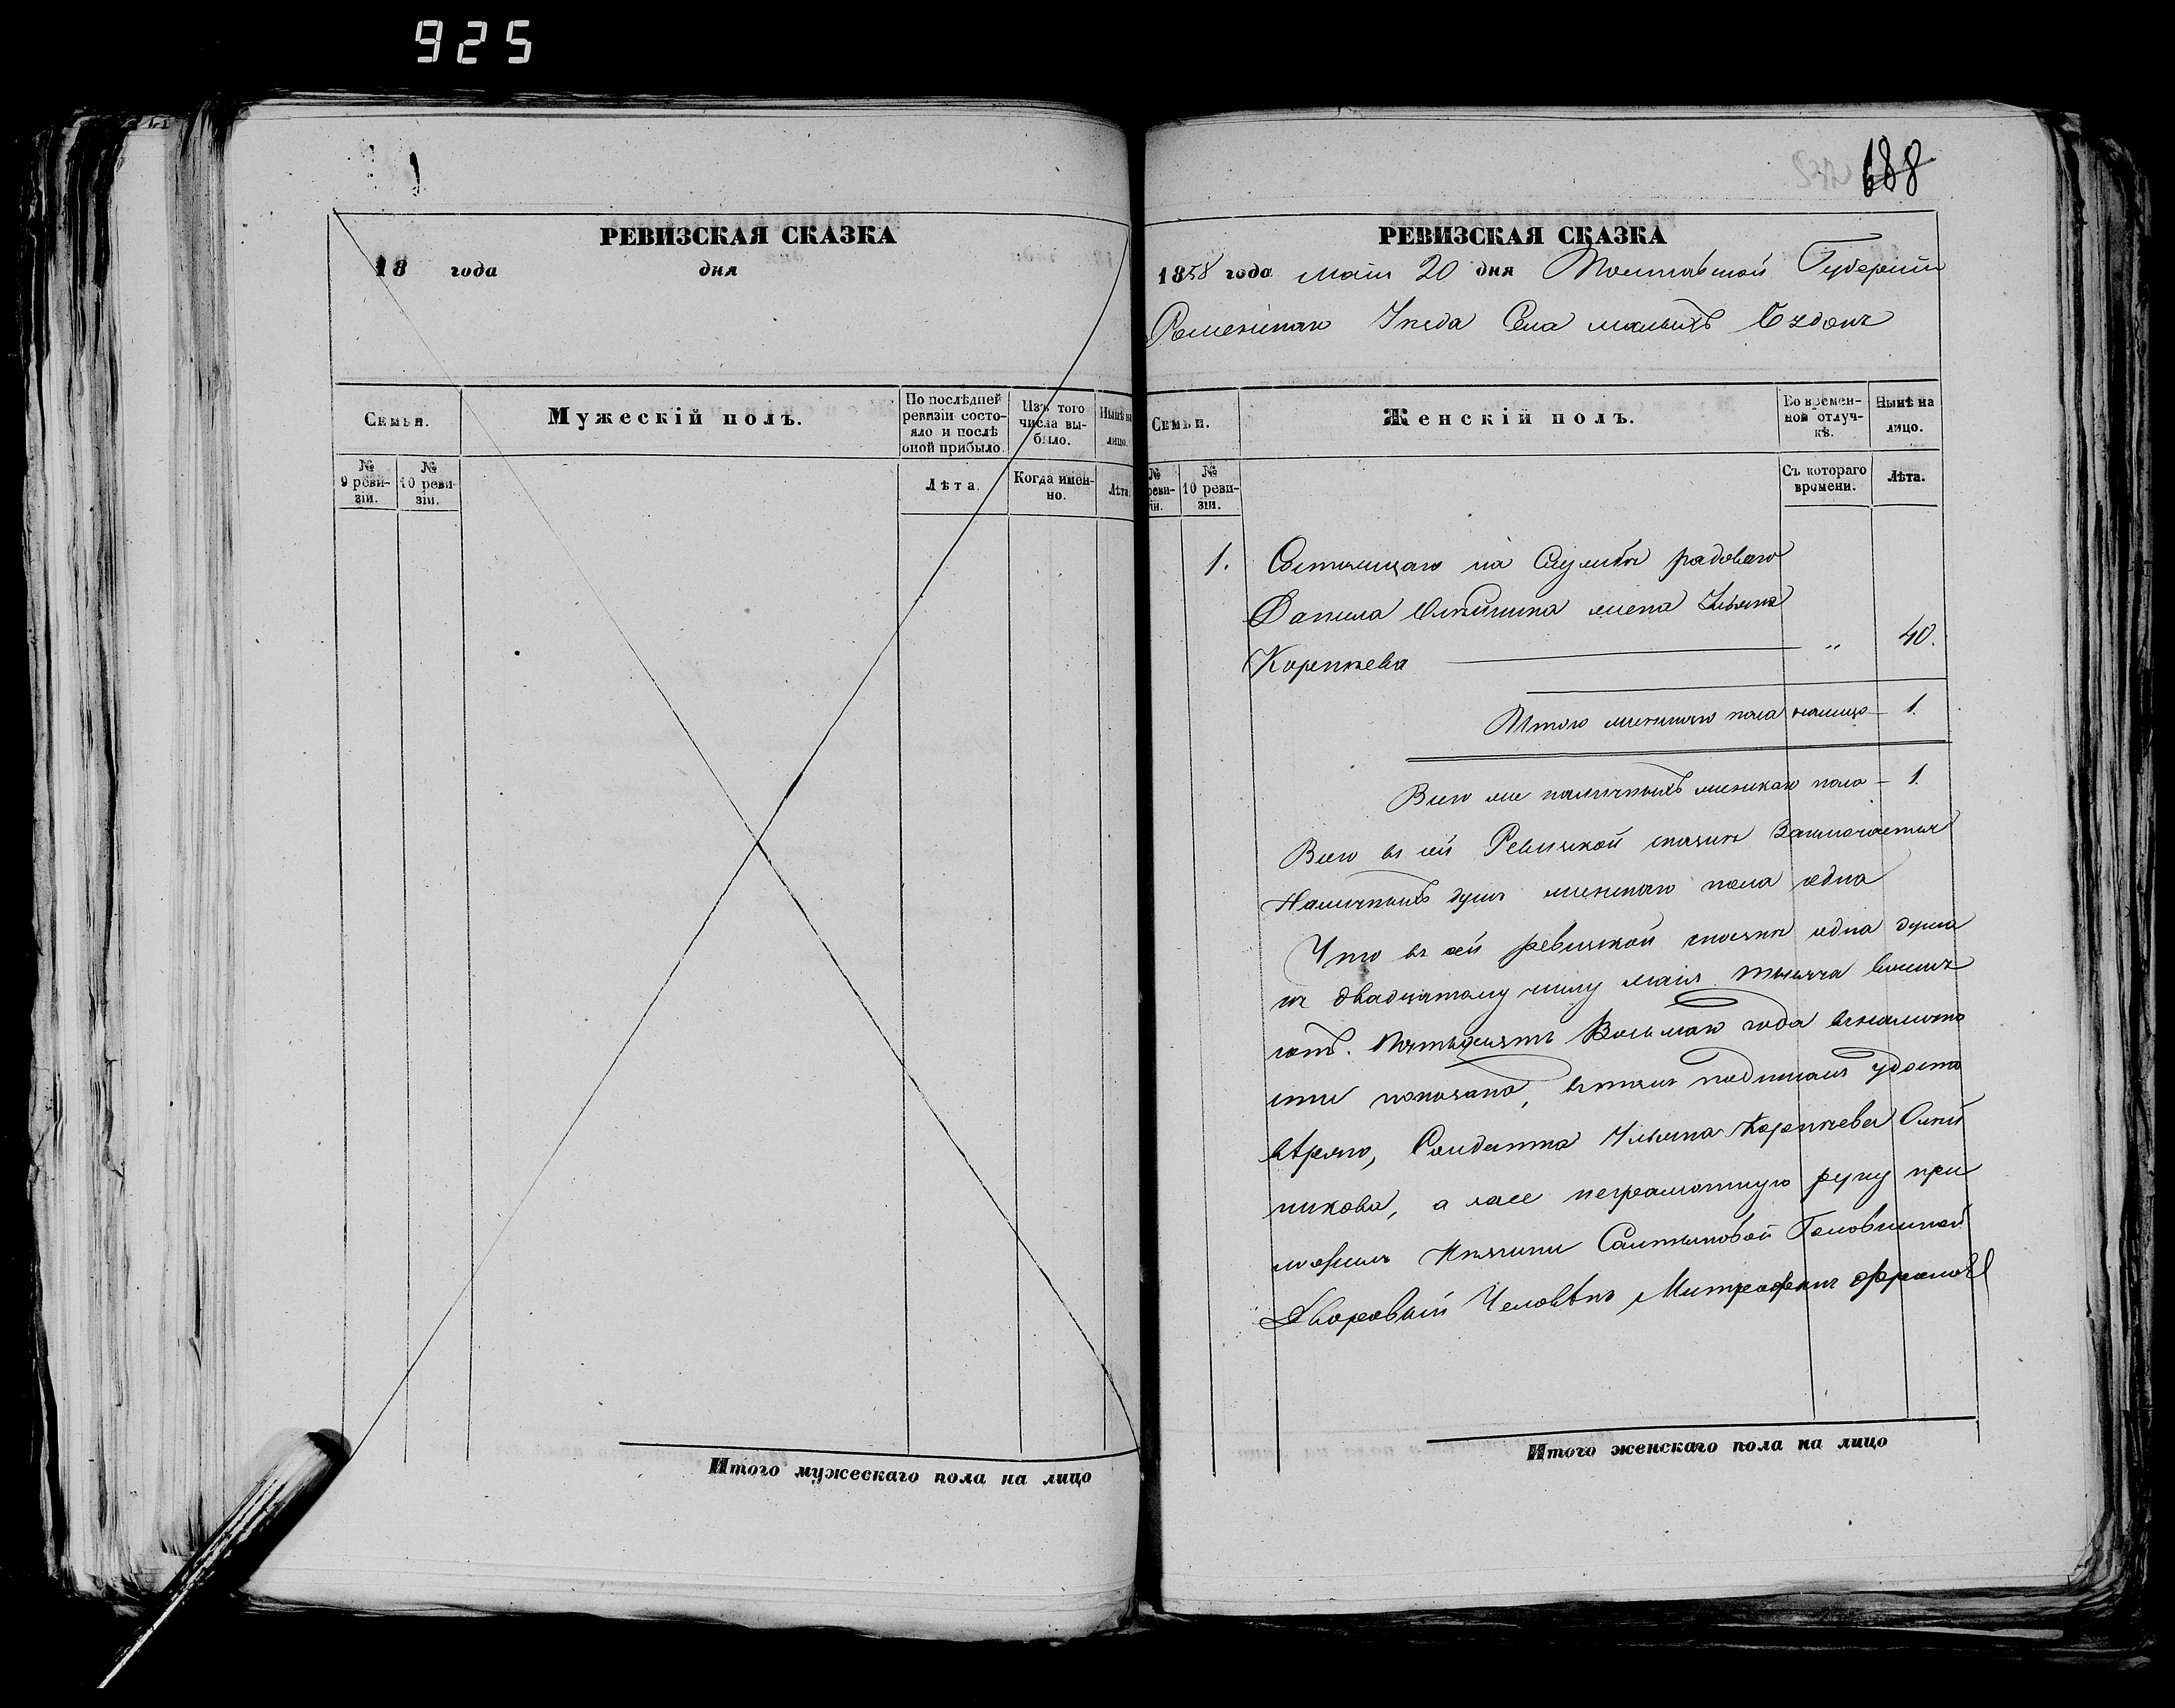 925
РЕВИЗСКАЯ СКАЗКА
18 года дня
Семьи.
Мужескій полъ.
По послѣдней ревизіи состояло и послѣ оной прибыло.
Изъ того числа выбыло.
Нынѣ на лицо.
№ 9 ревизіи.
№ 10 ревизіи.
Лѣта.
Когда именно.
Лѣта.
Итого мужескаго пола на лицо
688
РЕВИЗСКАЯ СКАЗКА
1858 года Маія 20 дня Полтавской Губерніи
Роменскаго Уезда Села малыхъ
Семьи.
Женскій полъ.
Во временной отлучкѣ.
Нынѣ на лицо.
№ реви- іи.
№ 10 ревизіи.
Съ котораго времени.
Лѣта.
1. Состоящаго на Службѣ рядоваго
Данила жена Ульяна
Корнѣева — „ 40.
Итого женскаго пола налицо — 1.
Всего же наличныхъ женскаго пола — 1.
Всего въ сей Ревизской сказкѣ Заключается
Наличныхъ душъ женскаго пола одна
Что въ сей ревизской сказкѣ одна душа
къ двадцатому числу маія тысяча восемь
сотъ. Пятьдесятъ Восьмаго года въналично
сти показана, вътомъ подписомъ удосто
вѣряю, Солдатка Ульяна Корнѣева Олѣй
никова, а заее неграмотную руку при
ложилъ Княгини Салтыковой Головкиной
Дворовый Человѣкъ Митрофанъ
Итого женскаго пола на лицо